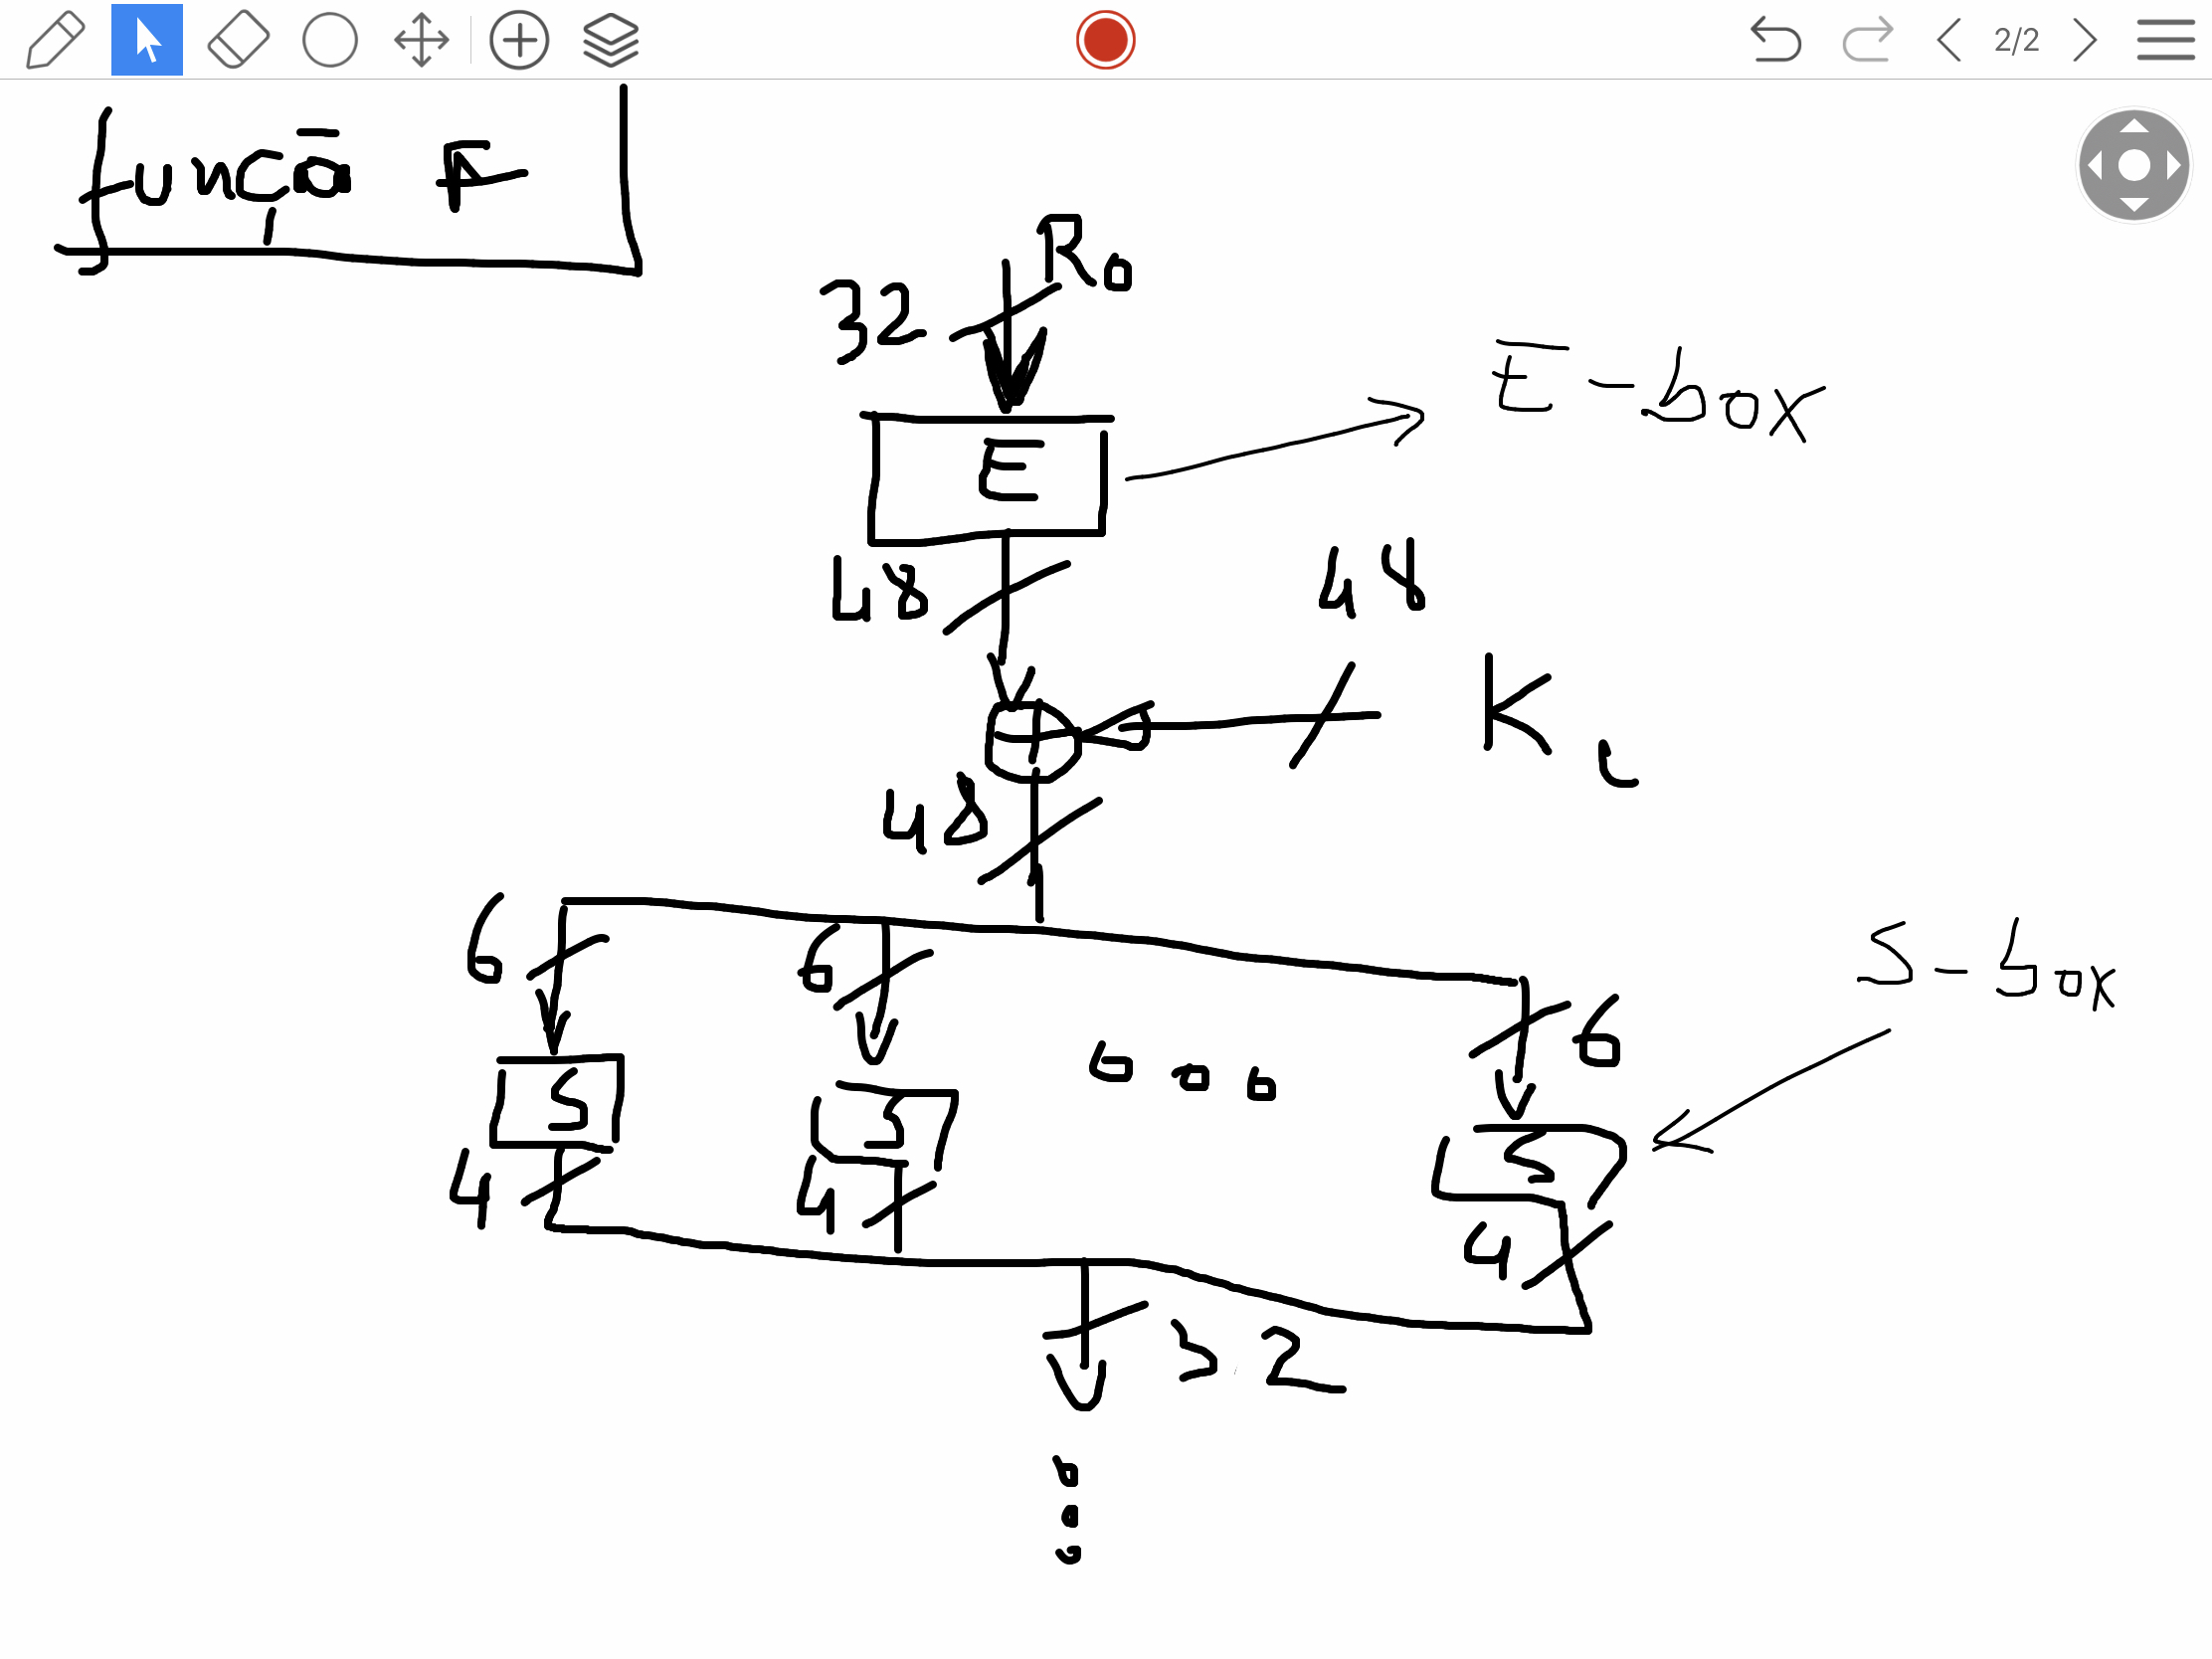 2/2
função F
R0
32
E - box
E
48
48
Ki
48
6
6
6
S - box
S
S
S
4
4
4
32